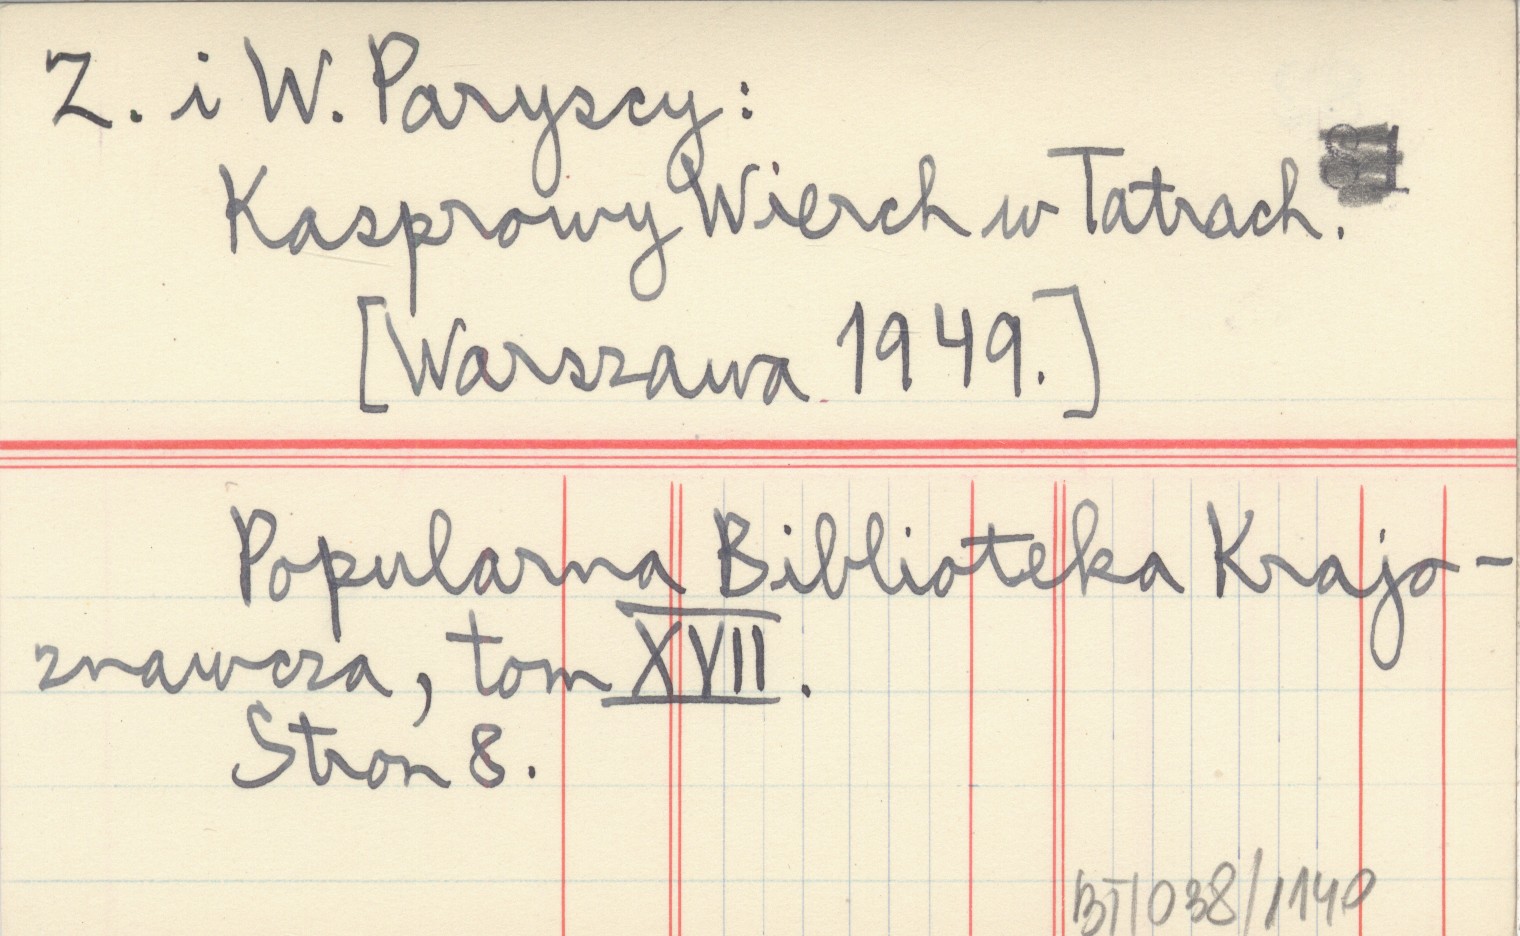 Z. i W. Paryscy:
Kasprowy Wierch w Tatrach.
[Warszawa 1949.]
Popularna Biblioteka Krajo-
znawcza, tom XVII.
Stron 8.
BT/038/1140